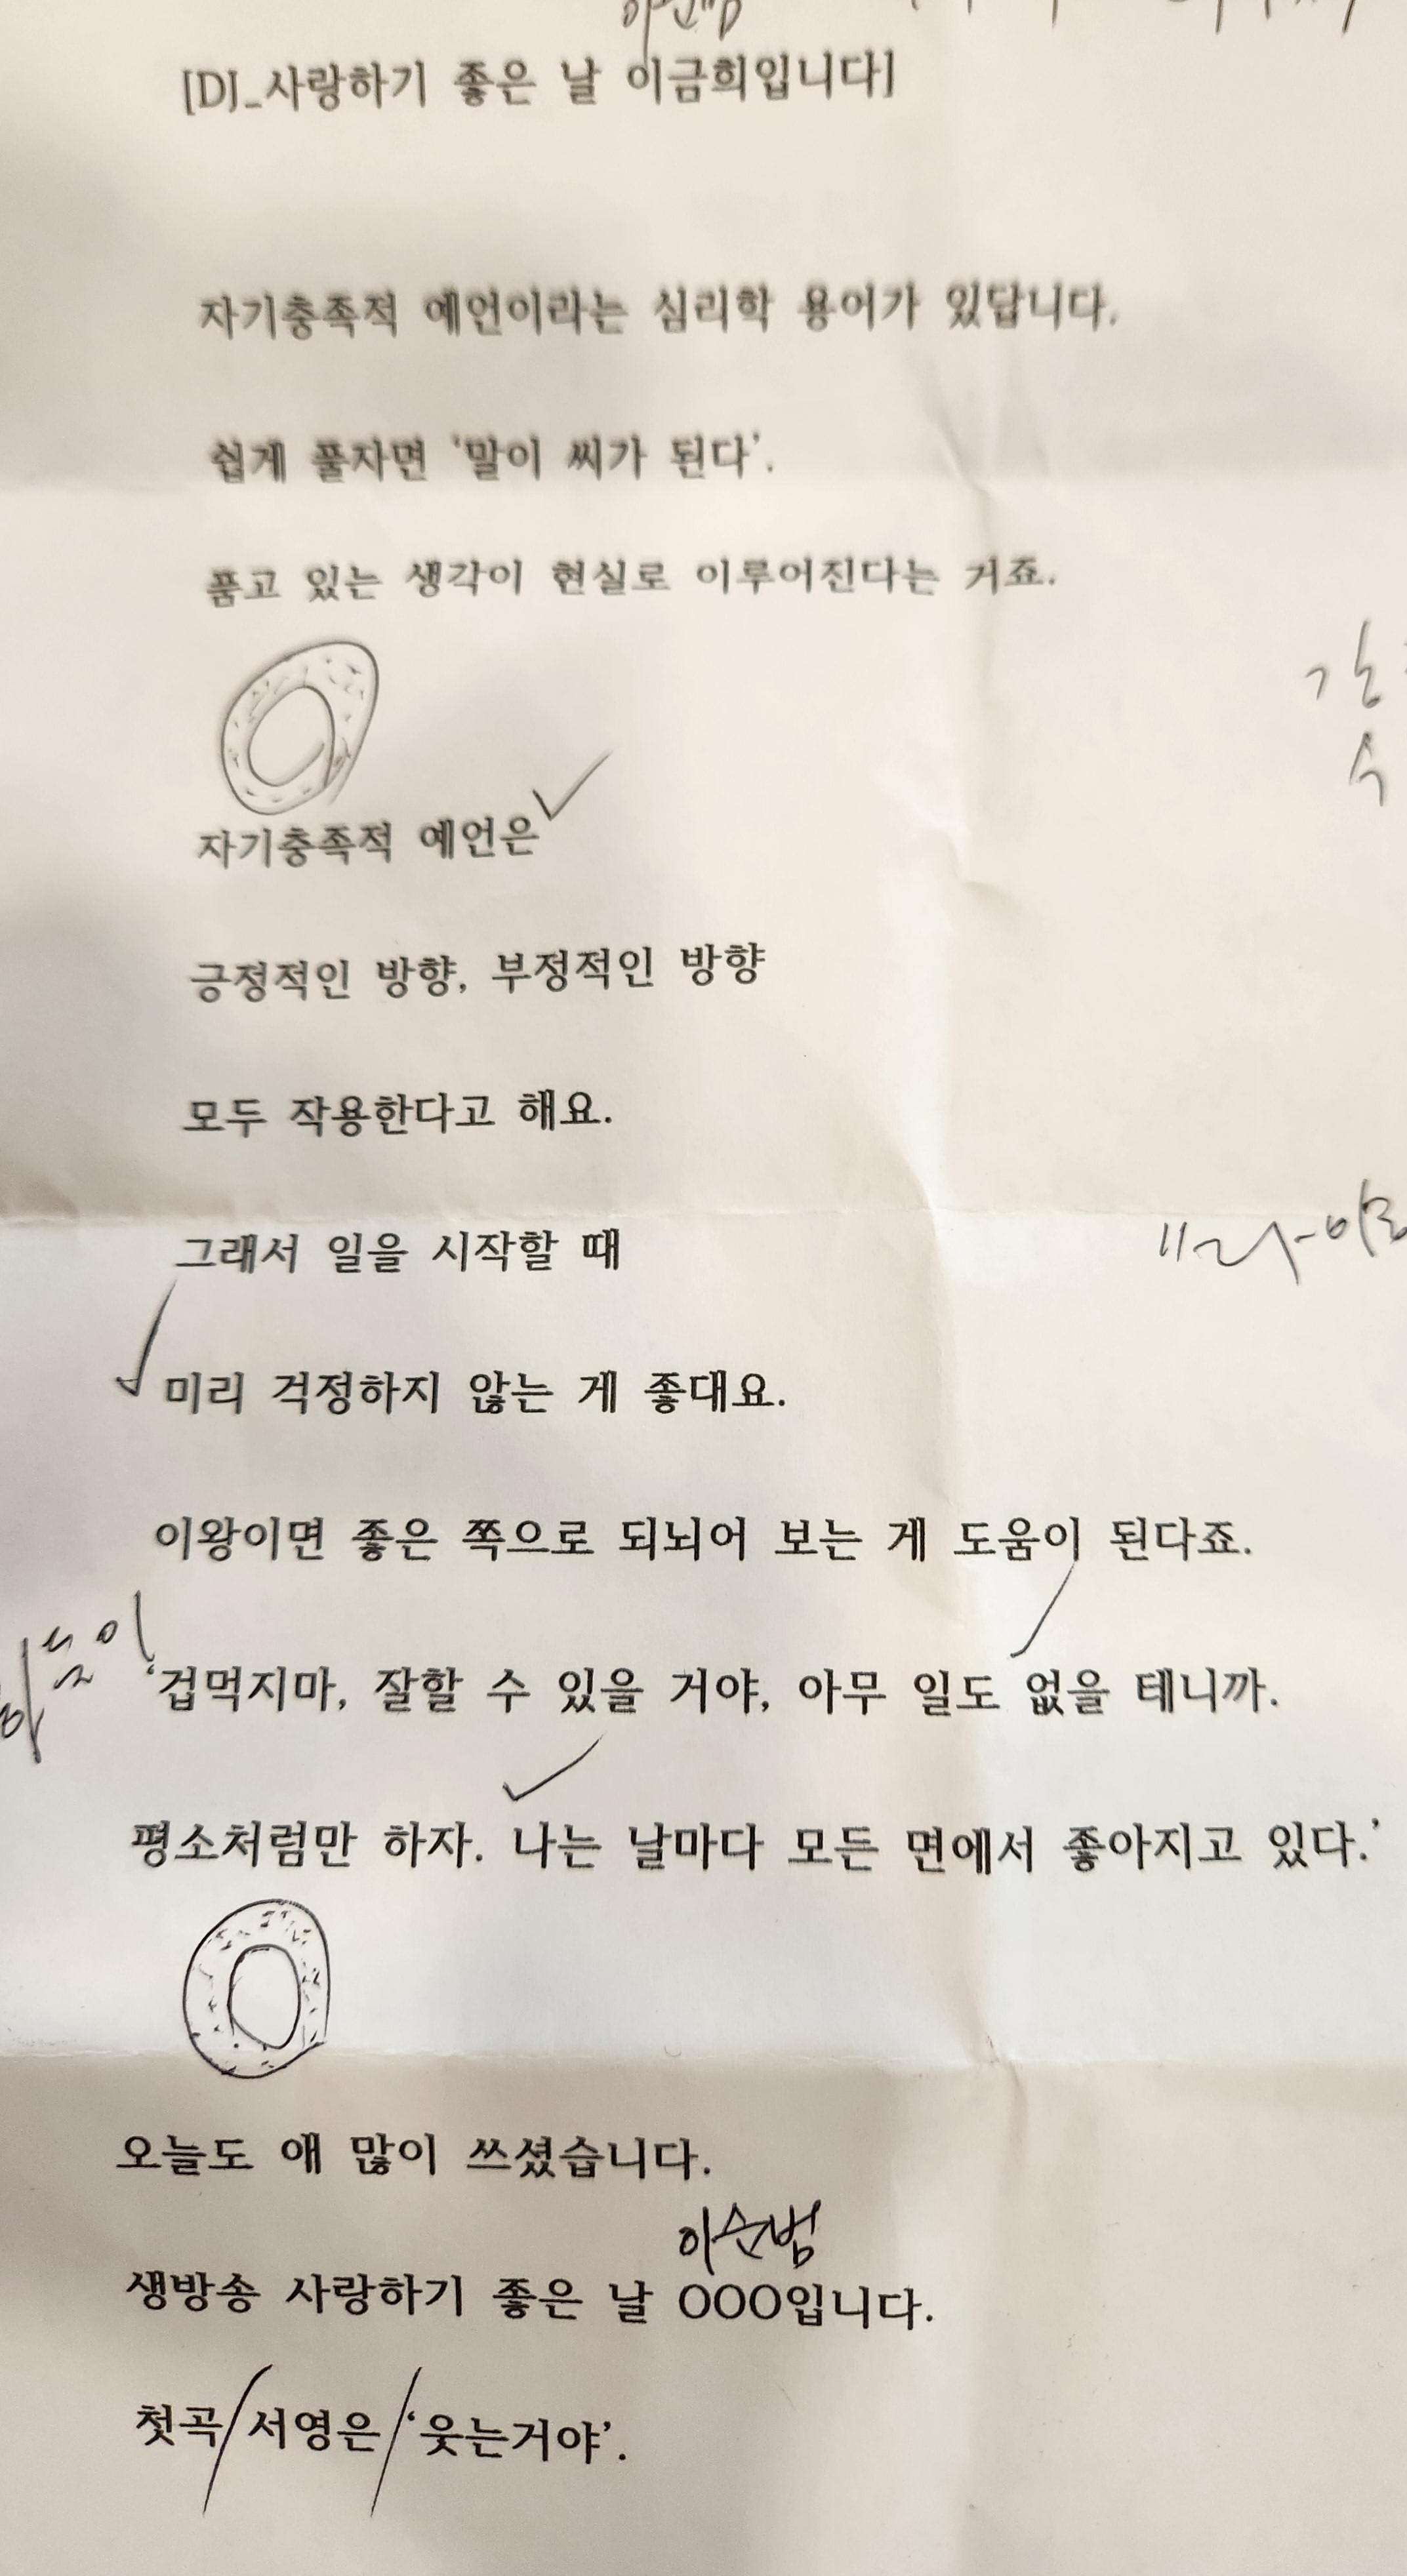 [DJ_사랑하기 좋은 날 이금희입니다]
자기충족적 예언이라는 심리학 용어가 있답니다.
쉽게 풀자면 '말이 씨가 된다'.
품고 있는 생각이 현실로 이루어진다는 거죠.
자기충족적 예언은
긍정적인 방향, 부정적인 방향
모두 작용한다고 해요.
그래서 일을 시작할 때
미리 걱정하지 않는 게 좋대요.
이왕이면 좋은 쪽으로 되뇌어 보는 게 도움이 된다죠.
'겁먹지마, 잘할 수 있을 거야, 아무 일도 없을 테니까.
평소처럼만 하자. 나는 날마다 모든 면에서 좋아지고 있다.'
오늘도 애 많이 쓰셨습니다.
이순범
생방송 사랑하기 좋은 날 OOO입니다.
첫곡/서영은/'웃는거야'.